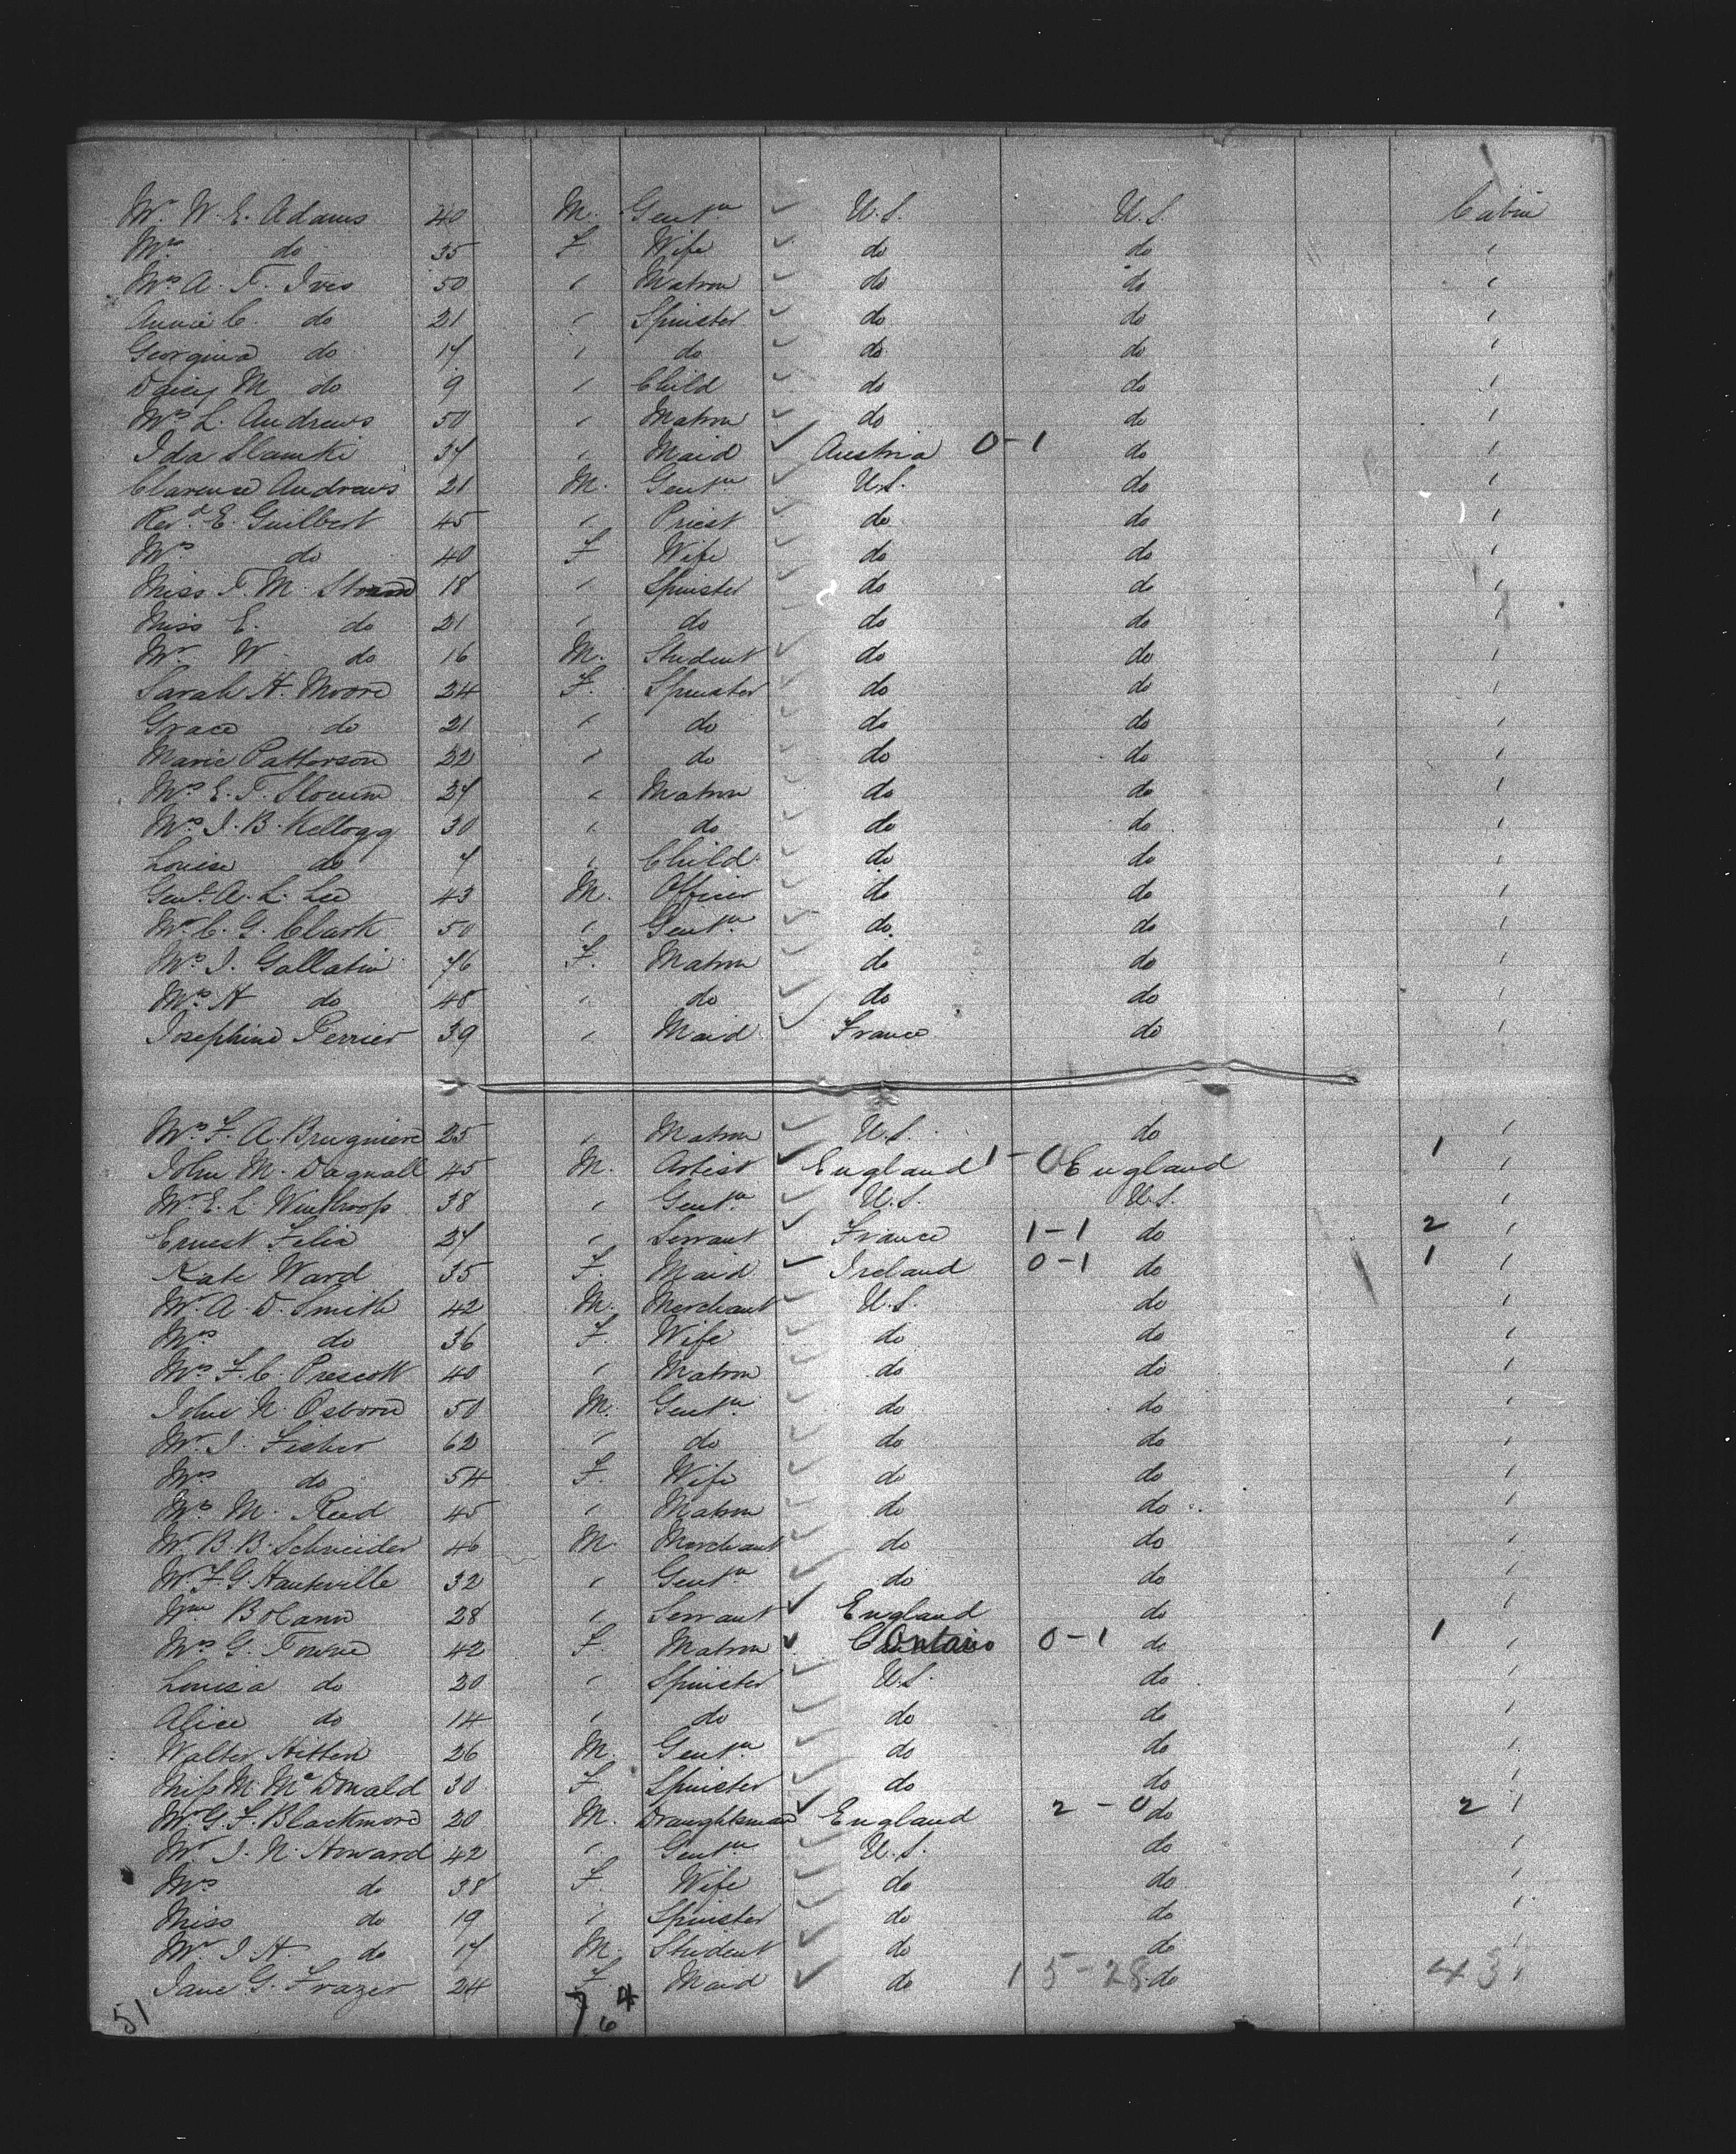 Mr. W. E. Adams 40 M. Gentn U.S. U.S. Cabin
Mrs do 35 F Wife do do "
Mrs A. F. Ives 50 " Matron do do "
Annie C. do 21 " Spinster do do "
Georgina do 17 " do do do "
Daisy M do 9 " Child do do "
Mrs L. Andrews 50 " Matron do do "
Ida 37 " Maid Austria 0-1 do "
Clarence Andrews 21 M. Gentn U.S. do "
Revd E. Guilbert 45 " Priest do do "
Mrs do 40 F Wife do do "
Miss F. M. 18 " Spinster do do "
Miss E. do 21 " do do do "
Mr. W. do 16 M. Student do do "
Sarah H. Moore 24 F. Spinster do do "
Grace do 21 " do do do "
Marie Patterson 22 " do do do "
Mrs E. T. Slocum 27 " Matron do do "
Mrs J. B. Kellogg 30 " do do do "
Louise do 7 " Child do do "
Genl A. L. Lee 43 M. Officer do do "
Mr C. G. Clark 50 " Gentn do do "
Mrs J. Gallatin 76 F. Matron do do "
Mrs H do 48 " do do do "
Josephine Perrier 39 " Maid France do "
Mrs F. A. Bruguiere 25 " Matron U.S. do "
John M. Dagnall 45 M. Artist England 1-0 England 1 "
Mr E. L. Winthrop 38 " Gentn U.S. U.S. "
Ernest Felix 27 " Servant France 1-1 do 2 "
Kate Ward 35 F. Maid Ireland 0-1 do 1 "
Mr A. D. Smith 42 M. Merchant U.S. do "
Mrs do 36 F. Wife do do "
Mrs F. C. Prescott 40 " Matron do do "
John N. Osborn 50 M. Gentn do do "
Mr J. 62 " do do do "
Mrs do 54 F. Wife do do "
Mrs M. Reed 45 " Matron do do "
Mr B. B. Schneider 46 M. Merchant do do "
Mr F. G. Hauteville 32 " Gentn do do "
Wm 28 " Servant England do "
Mrs G. Towne 42 F. Matron Ontario 0-1 do 1 "
Louisa do 20 " Spinster U.S. do "
Alice do 14 " do do do "
Walter 26 M. Gentn do do "
Miss M. McDonald 30 F Spinster do do "
Mr G. F. Blackmore 20 M. Draughtsman England 2-0 do 2 "
Mr J. N. Howard 42 " Gentn U.S. do "
Mrs do 38 F. Wife do do "
Miss do 19 " Spinster do do "
Mr J. H do 17 M. Student do do "
Jane G. Frazer 24 F. Maid do 15-28 do 43 "
51 7 6 4